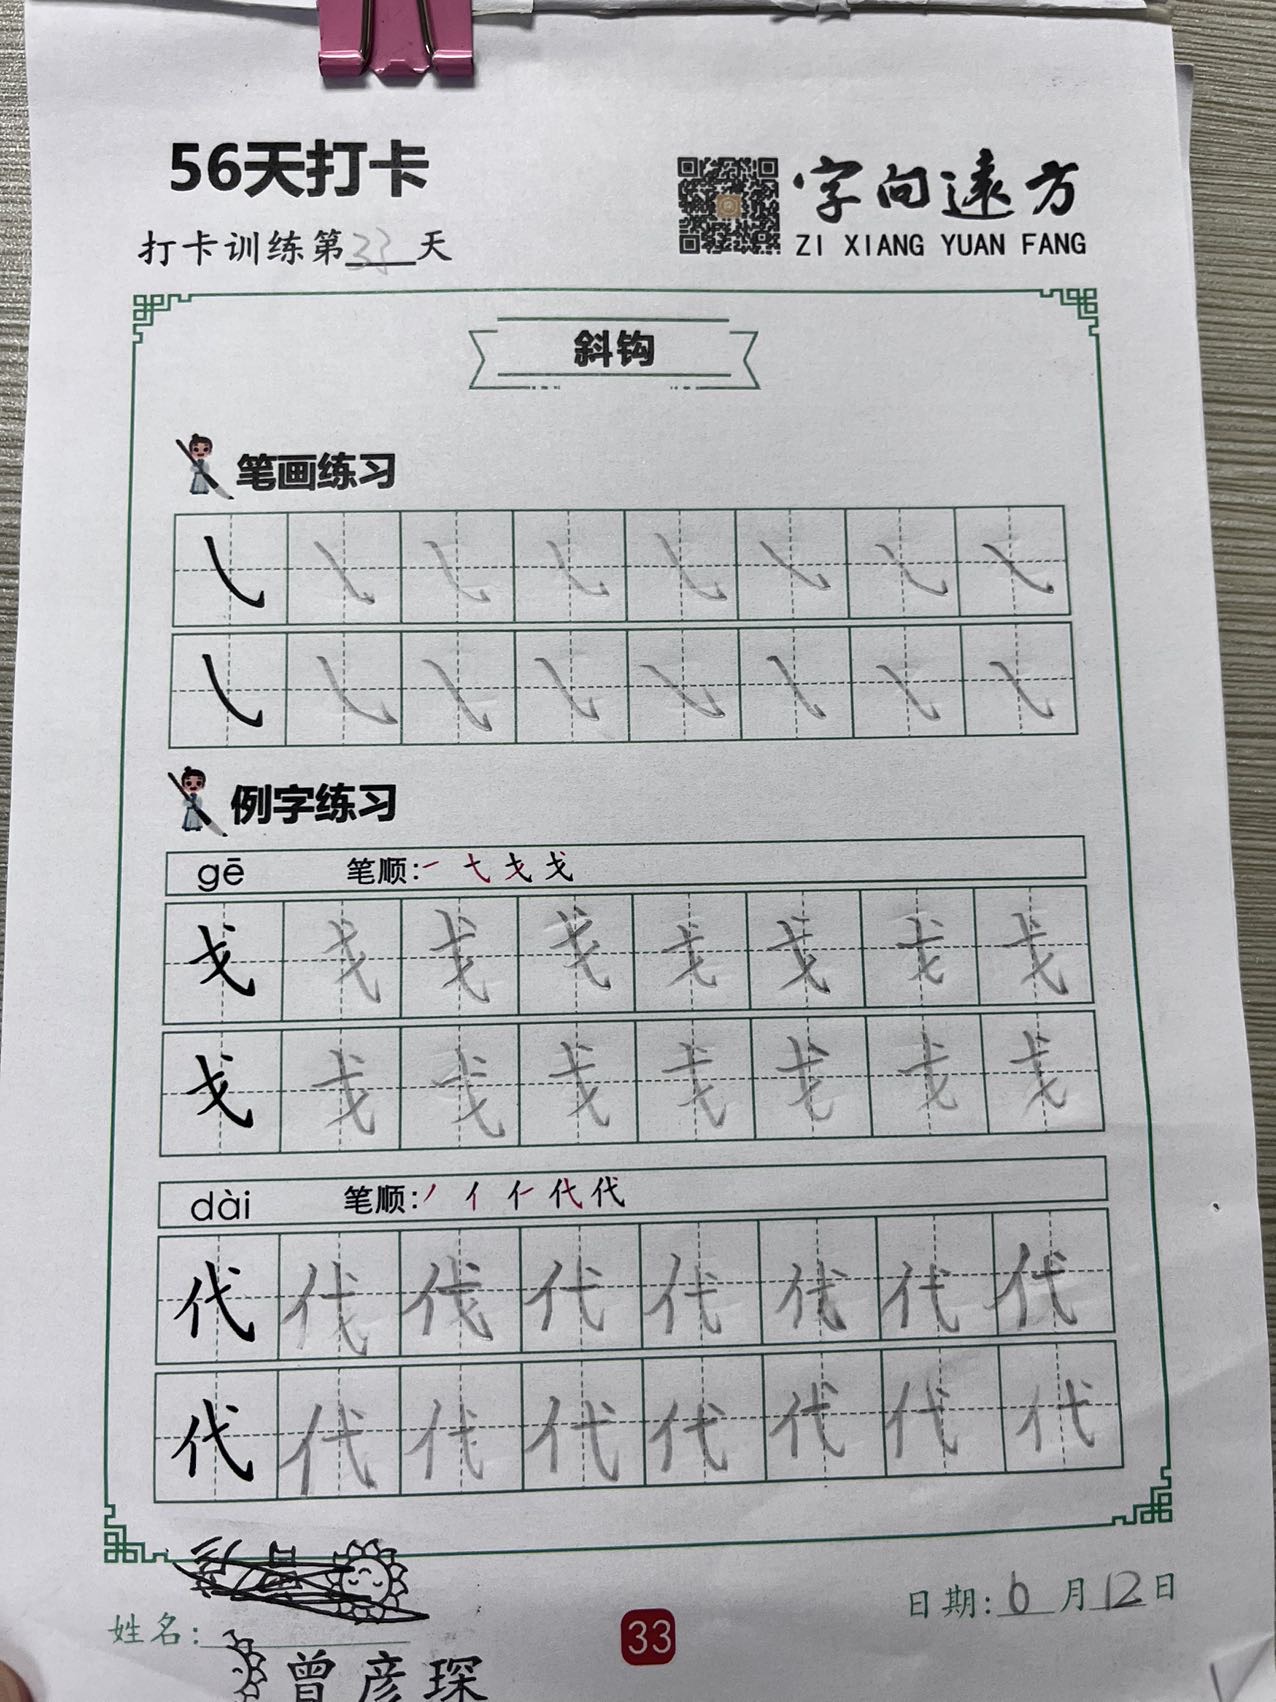 56天打卡
字向遠方
打卡训练第33天
ZI XIANG YUAN FANG
斜钩
笔画练习
例字练习
gē 笔顺:
戈 戈 戈 戈 戈 戈 戈 戈
戈 戈 戈 戈 戈 戈 戈 戈
dài 笔顺: 丿 亻 代 代
代 代 代 代 代 代 代 代
代 代 代 代 代 代 代 代
姓名:
曾彦琛
33
日期:6月12日